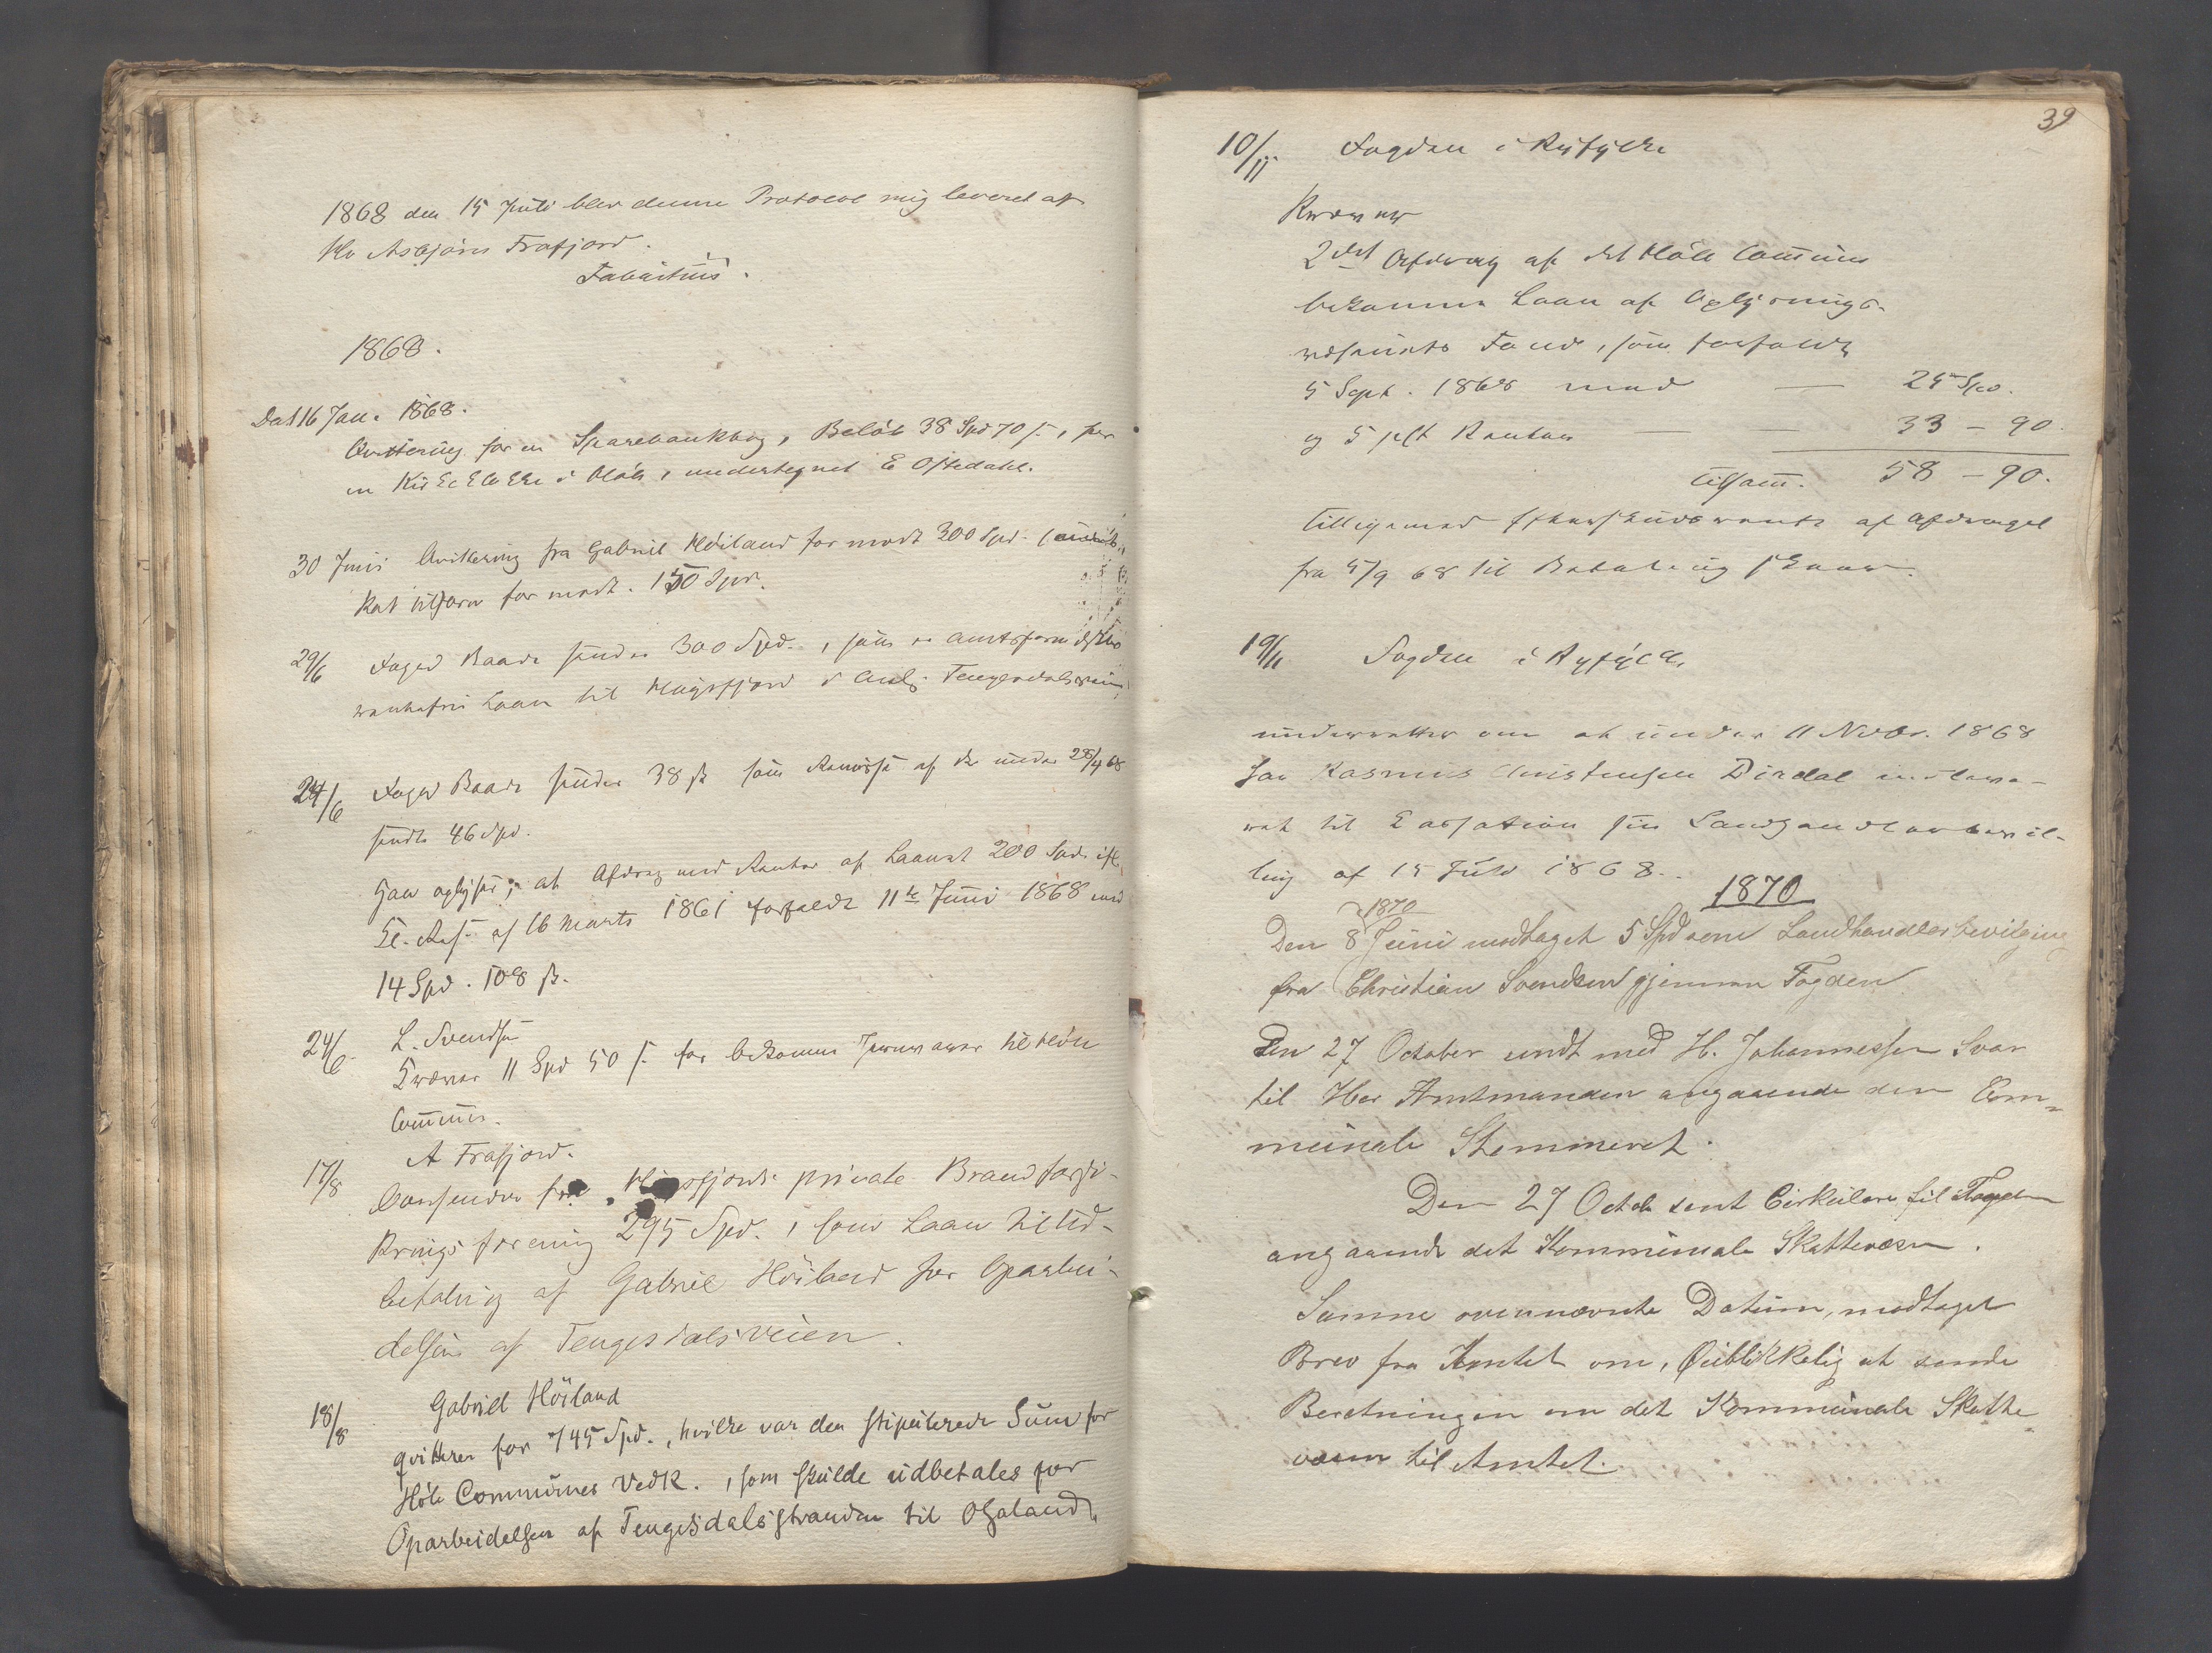 1868 den 15 Juli blev denne Protocol mig leveret af
Hr Asbjörn Frafjord.
Fabritius.
1868.
Dat 16 Jan. 1868.
Qvittering for en Sparebankbog, Belöb 38 Spd 70 s., for
en Kirkeklokke i Höle, undertegnet E Oftedahl.
30 Juni Qvittering fra Gabriel Höiland for modt 300 Spd.
for modt. 150 Spd.
29/6 Foged Baade sender 300 Spd., som et
rentefri Laan til Högsfjord i Anl.
24/6 Foged Baade sender 38 s som af de under 28/4 68
sendte 46 Spd.
Han oplyser; at Afdrag med Renter af Laanet 200 Spd ifl.
Kl. Res. af 16 Marts 1861 forfaldt 11te Juni 1868 med
14 Spd. 108 s.
24/6 L. Svendsen
Kræver 11 Spd 50 s. for bekomne til Höle
Commune.
A Frafjord.
17/8 private Brandforsi-
krings forening 295 Spd., som Laan til Ud-
betaling af Gabriel Höiland for Oparbei-
delsen af Tengesdalsveien.
18/8 Gabriel Höiland
qvitterer for 745 Spd., hvilke var den stipulerede Sum for
Höle Communes Vedk., som skulde udbetales for
Oparbeidelsen af Tengesdalsstranden til
39
10/11 Fogden i Ryfylke
Kræver
2det Afdrag af det Höle Commune
bekomne Laan af Oplysnings-
væsenets Fond, som forfaldt
5 Sept. 1868 med — 25 Spd.
og 5 pCt Renter — — 33 - 90.
tilsam. 58 - 90.
tilligemed af Afdraget
fra 5/9 68 til Betaling skeer.
19/11 Fogden i Ryfylke,
underretter om at under 11 Novbr. 1868
har Rasmus Christensen Dirdal indleve-
ret til Cassation sin Landhandlerbevil-
ling af 15 Juli 1868.
1870
1870
Den 8 Juni modtaget 5 Spd som Landhandlerbevilging
fra Christian Svendsen gjennem Fogden
Den 27 October sendt med H. Johannessen Svar
til Her Amtmanden angaaende den Com=
munale Stemmeret.
Den 27 Octob sent Cirkulære til Fogden
angaaende det Kommunale Skattevæsen.
Samme ovennævnte Datum, modtaget
Brev fra Amtet om, Øieblikkelig at sende
Beretningen om det Kommunale Skatte
væsen til Amtet.